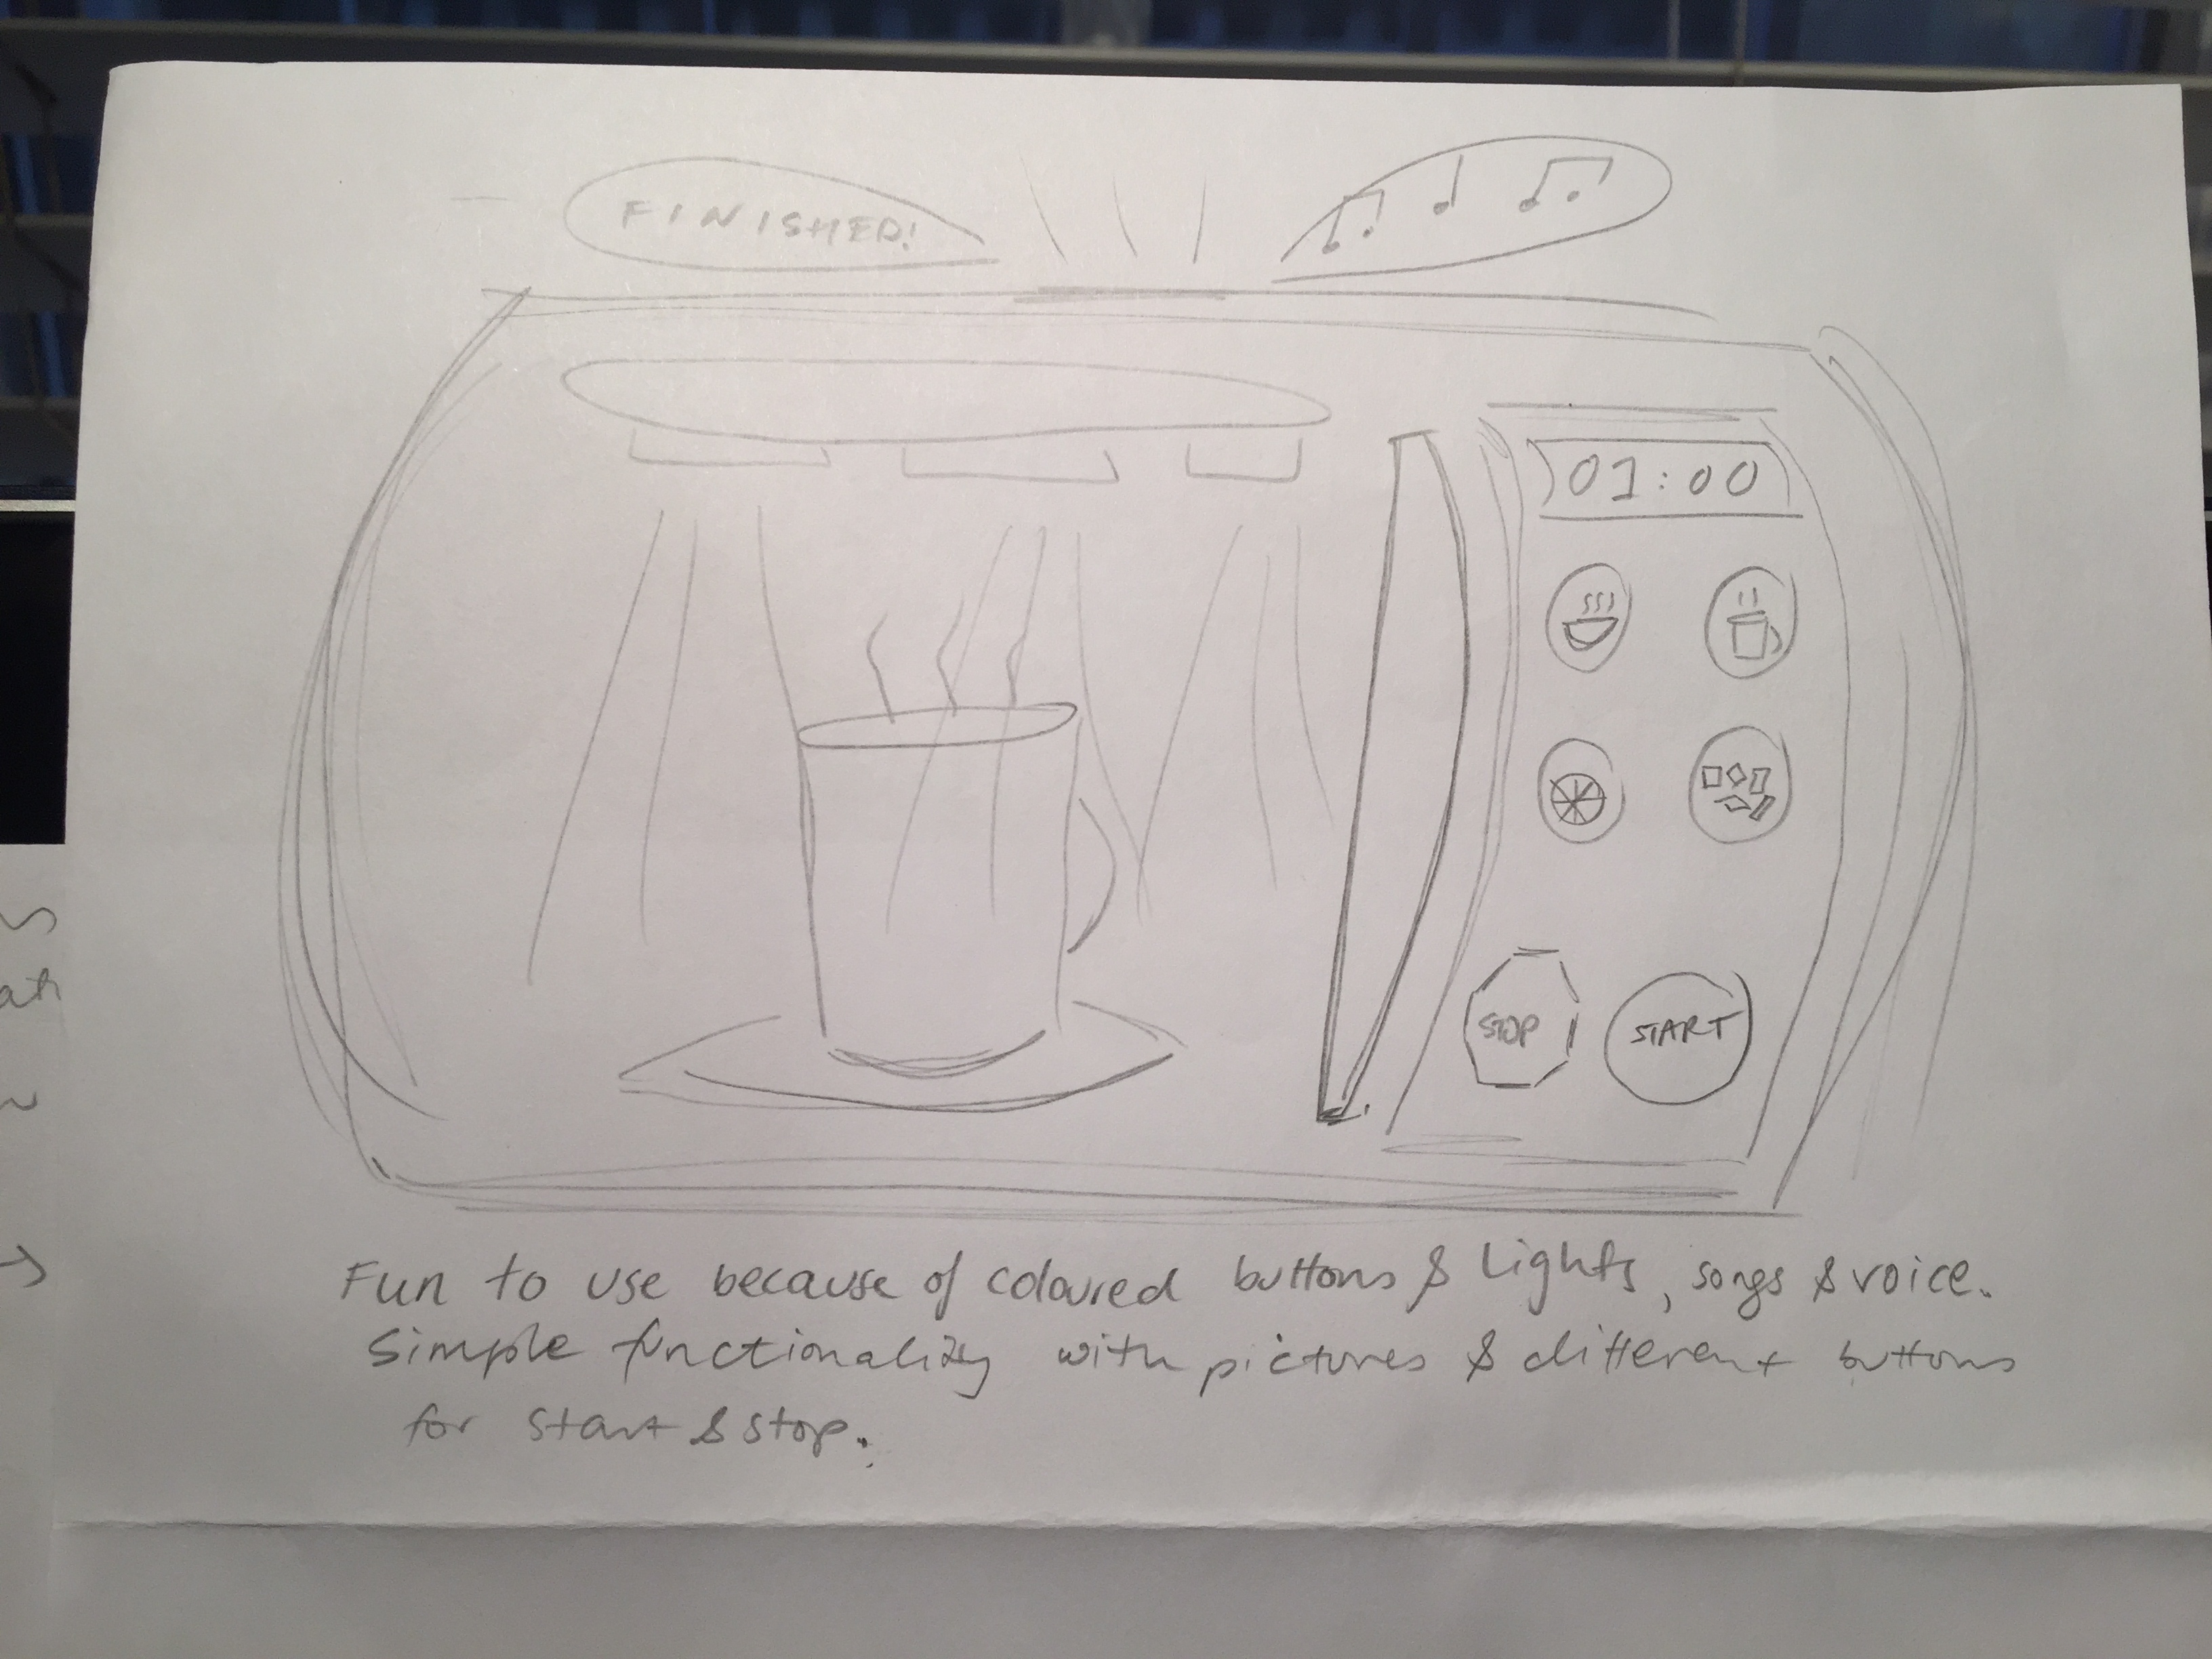 FINISHED!
01:00
STOP
START
Fun to use because of coloured buttons & Lights, songs & voice.
Simple functionality with pictures & different buttons
for start & stop.